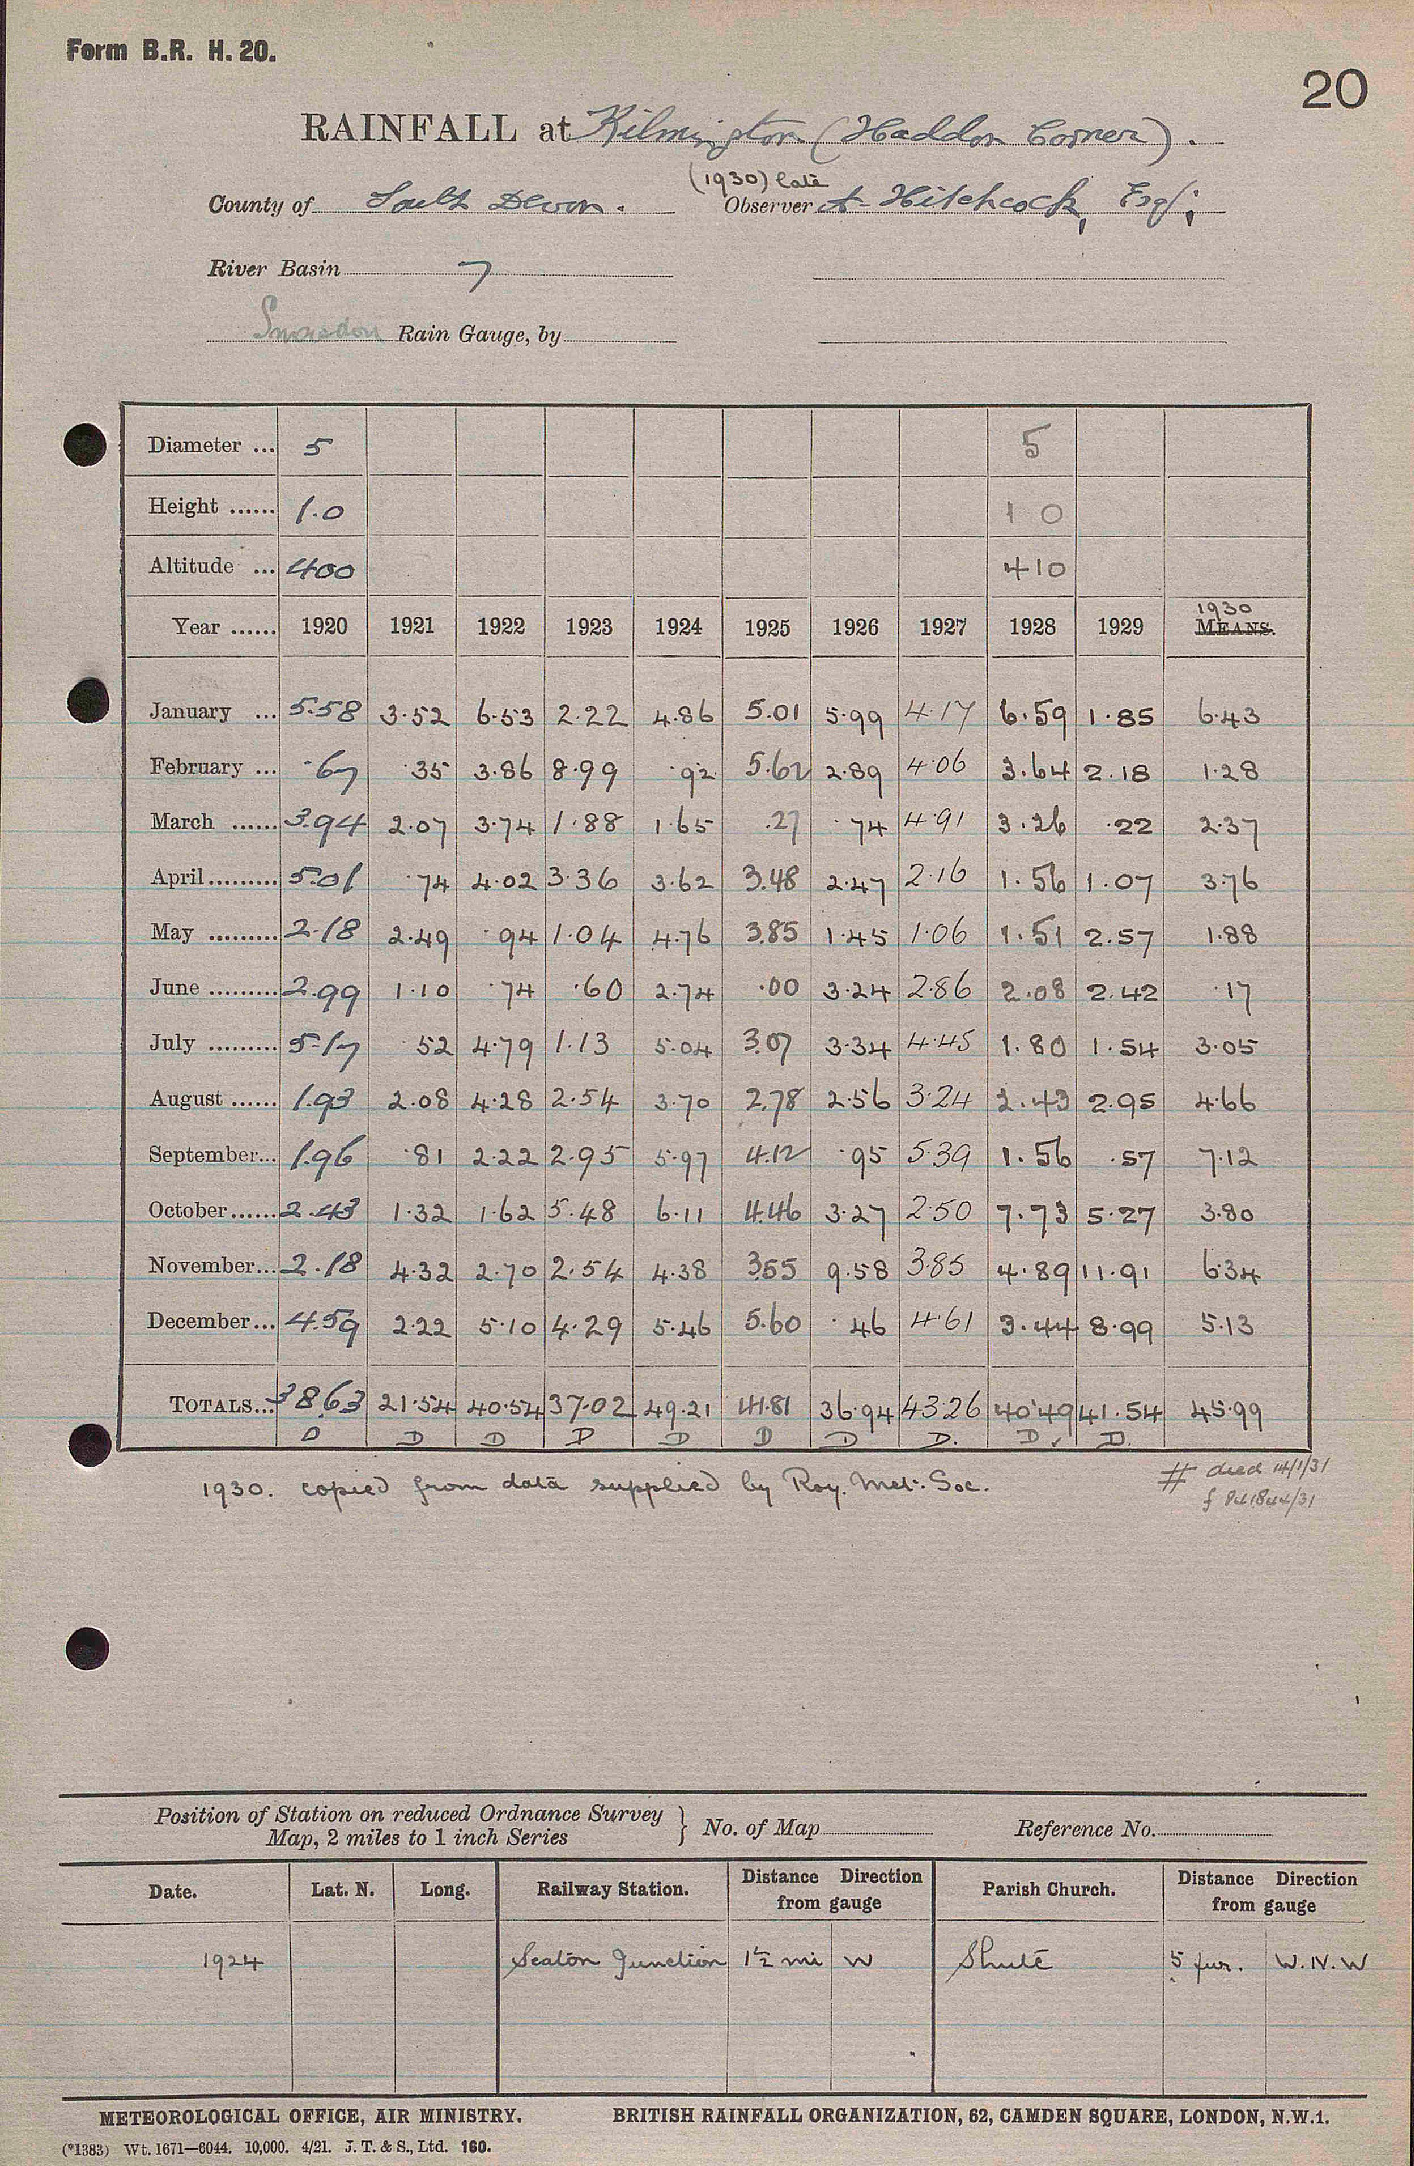 Form B.R. H. 20.
20
RAINFALL at Kilmington (Haddon Corner).
(1930) late
County of South Devon. Observer A Hitchcock, Esq;
River Basin 7
Snowdon Rain Gauge, by
Diameter ... 5 5
Height ...... 1.0 1 0
Altitude ... 400 410
1930
Year ...... 1920 1921 1922 1923 1924 1925 1926 1927 1928 1929 MEANS.
January ... 5.58 3.52 6.53 2.22 4.86 5.01 5.99 4.17 6.59 1.85 6.43
February ... .67 .35 3.86 8.99 .92 5.62 2.89 4.06 3.64 2.18 1.28
March ...... 3.94 2.07 3.74 1.88 1.65 .27 .74 4.91 3.26 .22 2.37
April ......... 5.01 .74 4.02 3.36 3.62 3.48 2.47 2.16 1.56 1.07 3.76
May ......... 2.18 2.49 .94 1.04 4.76 3.85 1.45 1.06 1.51 2.57 1.88
June ......... 2.99 1.10 .74 .60 2.74 .00 3.24 2.86 2.08 2.42 .17
July ......... 5.17 .52 4.79 1.13 5.04 3.07 3.34 4.45 1.80 1.54 3.05
August ...... 1.93 2.08 4.28 2.54 3.70 2.78 2.56 3.24 2.43 2.95 4.66
September... 1.96 .81 2.22 2.95 5.97 4.12 .95 5.39 1.56 .57 7.12
October ...... 2.43 1.32 1.62 5.48 6.11 4.46 3.27 2.50 7.73 5.27 3.80
November... 2.18 4.32 2.70 2.54 4.38 3.55 9.58 3.85 4.89 11.91 6.34
December ... 4.59 2.22 5.10 4.29 5.46 5.60 .46 4.61 3.44 8.99 5.13
TOTALS... 38.63 21.54 40.54 37.02 49.21 41.81 36.94 43.26 40.49 41.54 45.99
D D D D D D D D. D. D.
1930. copied from data supplied by Roy. Met. Soc.
# died 14/1/31
Position of Station on reduced Ordnance Survey
Map, 2 miles to 1 inch Series } No. of Map Reference No.
Date. Lat. N. Long. Railway Station. Distance Direction from gauge Parish Church. Distance Direction from gauge
1924 Seaton Junction 1½ mi W Shute 5 fur. W.N.W
METEOROLOGICAL OFFICE, AIR MINISTRY. BRITISH RAINFALL ORGANIZATION, 62, CAMDEN SQUARE, LONDON, N.W.1.
(*1383) Wt. 1671—6044. 10,000. 4/21. J. T. & S., Ltd. 160.